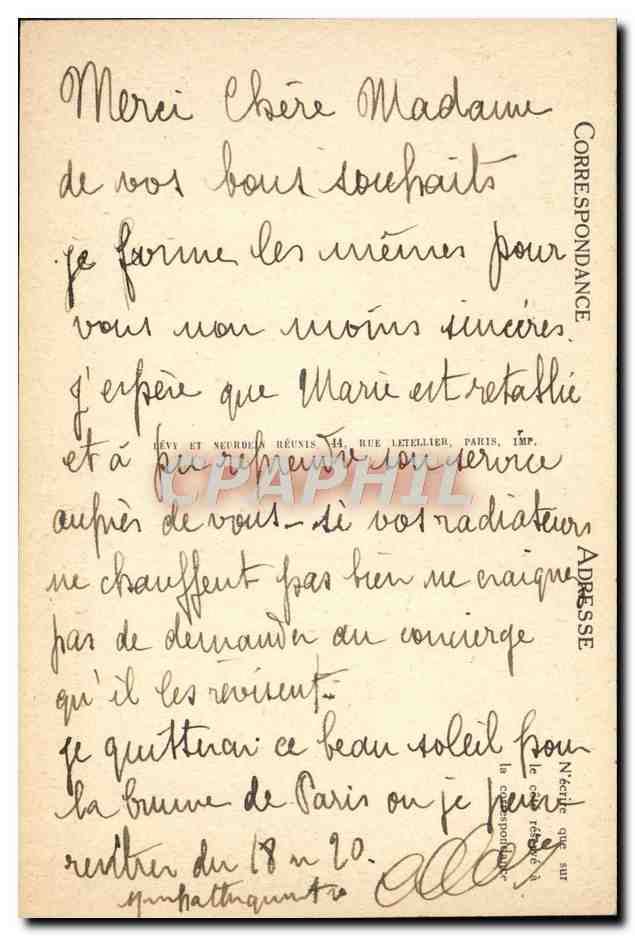 Merci Chère Madame
de vos bons souhaits
je forme les mêmes pour
vous non moins sincères.
J'espère que Marie est retablie
et à pu reprendre son service
auprès de vous – si vos radiateurs
ne chauffent pas bien ne craignez
pas de demander au concierge
qu'il les révisent.
je quitterai ce beau soleil pour
la brume de Paris ou je pense
rentrer du 18 au 20.
sympathiquement
CORRESPONDANCE
ADRESSE
N'écrire que sur
le côté réservé à
la correspondance
LÉVY ET NEURDEIN RÉUNIS, 44, RUE LETELLIER, PARIS, IMP.
CPAPHIL